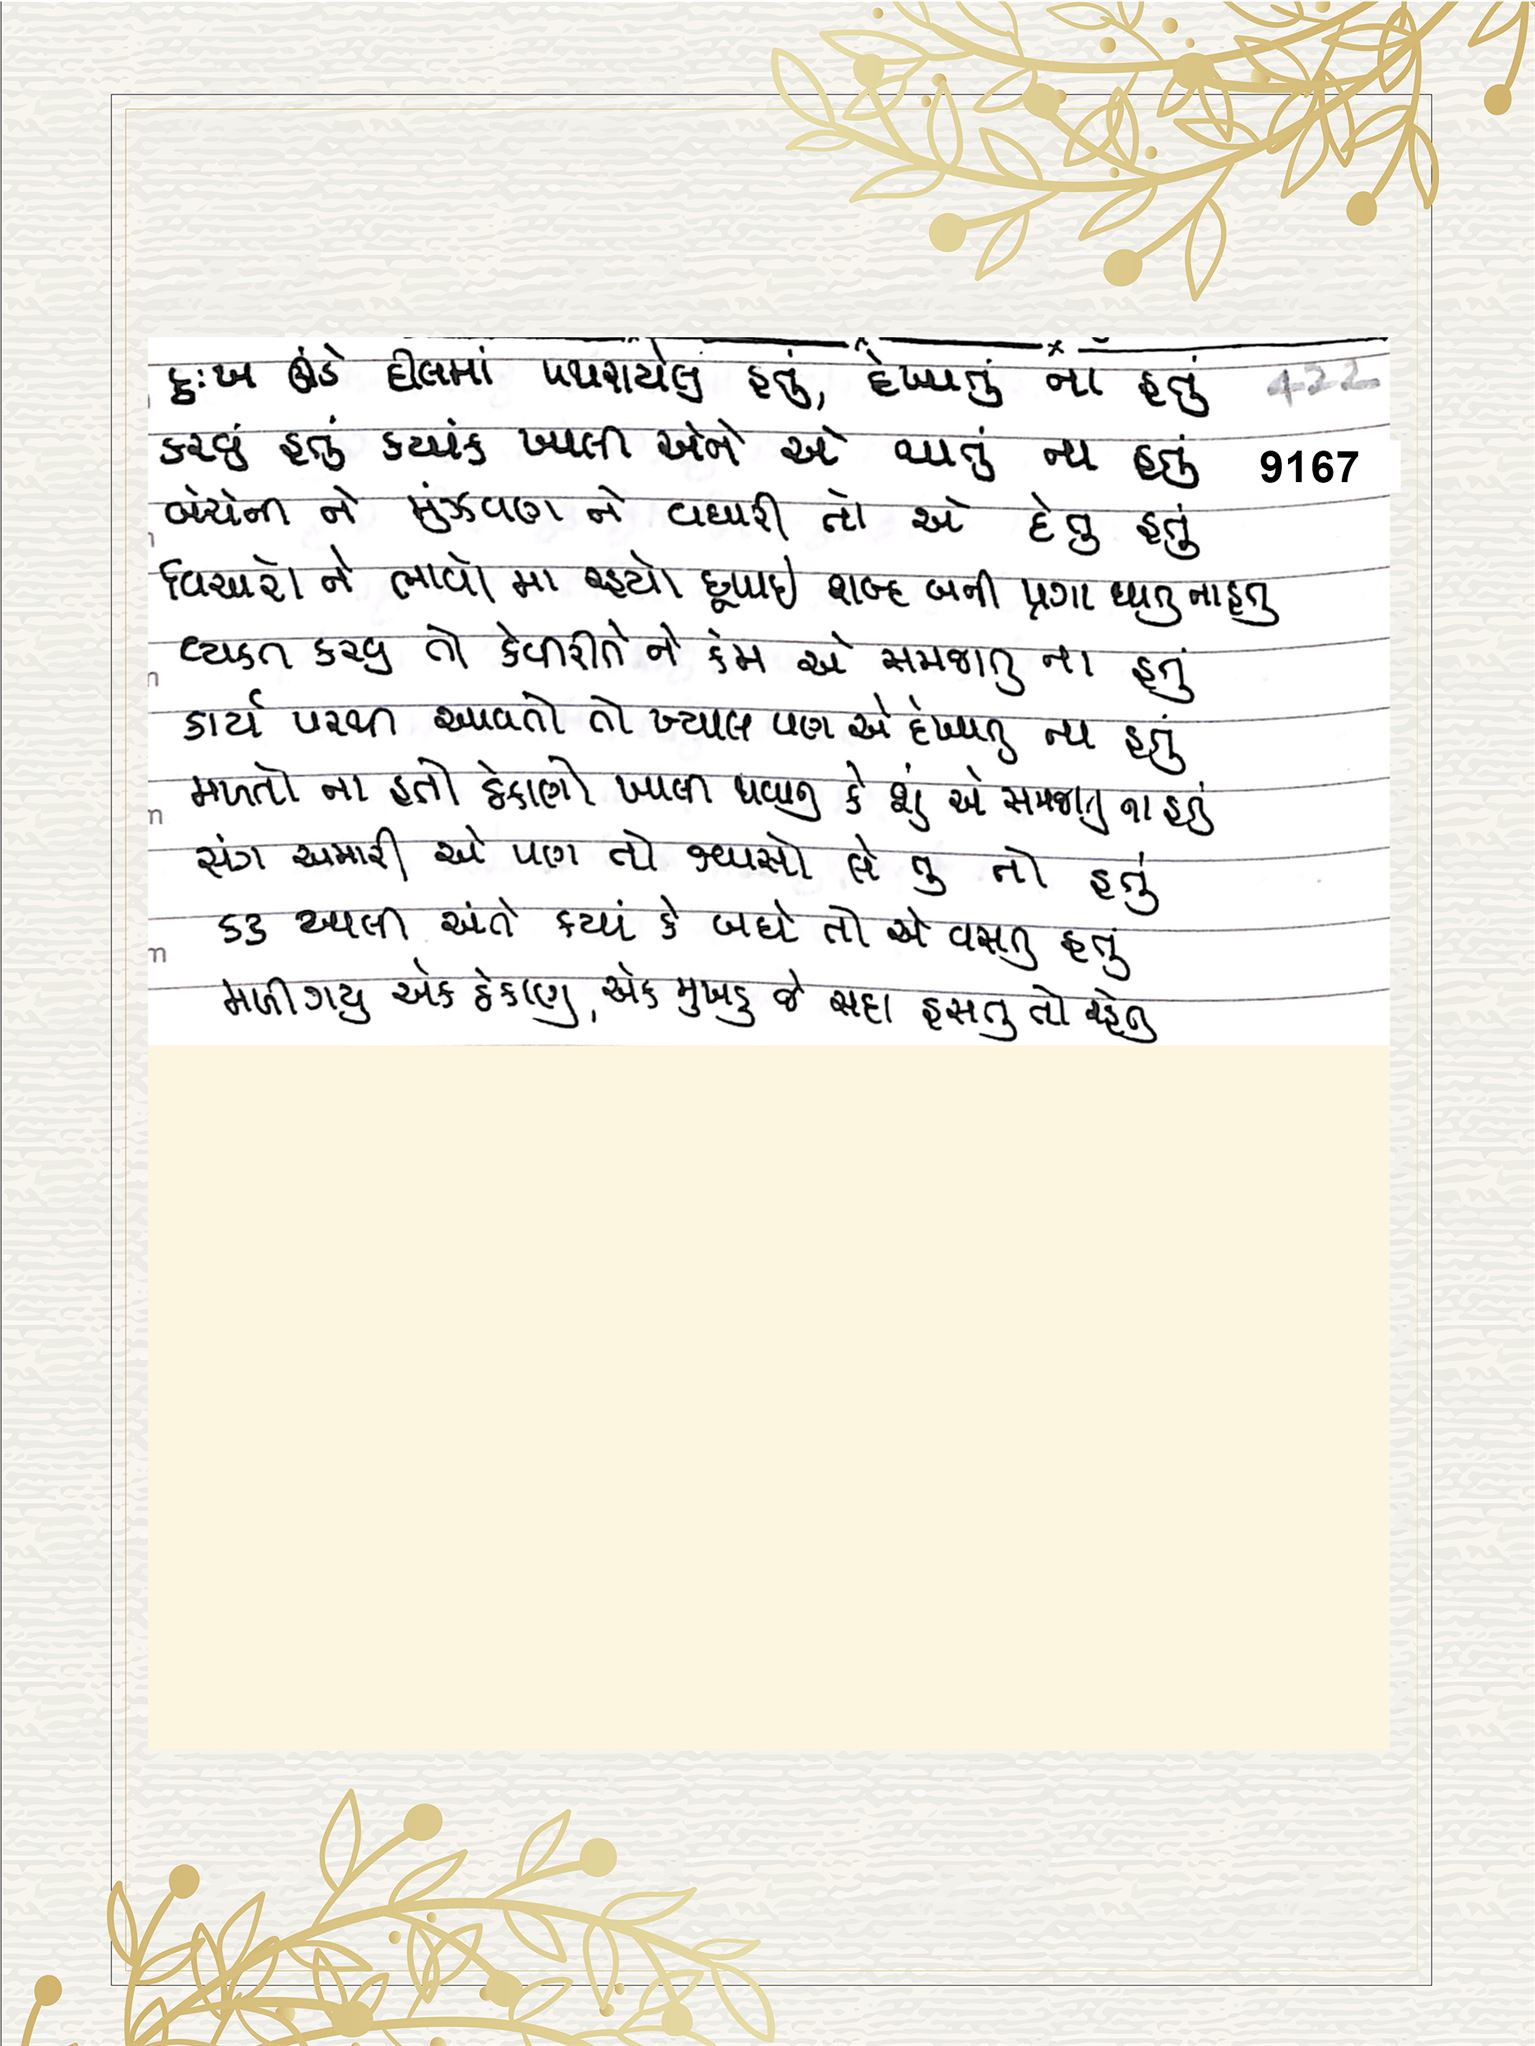 દુઃખ ઊંડે દીલમાં પથરાયેલું હતું, દેખાતું ના હતું 422
કરવું હતું કયાંક ખાલી એને એ થાતું ના હતું 9167
બેચેની ને મુંઝવણ ને વધારી તો એ દેતુ હતું
વિચારો ને ભાવો મા રહયો છૂપાઇ શબ્દ બની પ્રગટ થાતુ ના હતુ
વ્યકત કરવુ તો કેવીરીતે ને કેમ એ સમજાતુ ના હતું
કાર્ય પરથી આવતો તો ખ્યાલ પણ એ દેખાતુ ના હતું
મળતો ના હતો ઠેકાણો ખાલી થવાનુ કે શું એ સમજાતુ ના હતું
સંગ અમારી એ પણ તો શ્વાસો લે તુ તો હતું
ખાલી અંતે કયાં કે બધે તો એ વસતુ હતું
મળી ગયુ એક ઠેકાણુ, એક મુખડુ જે સદા હસતુ તો રહેતુ